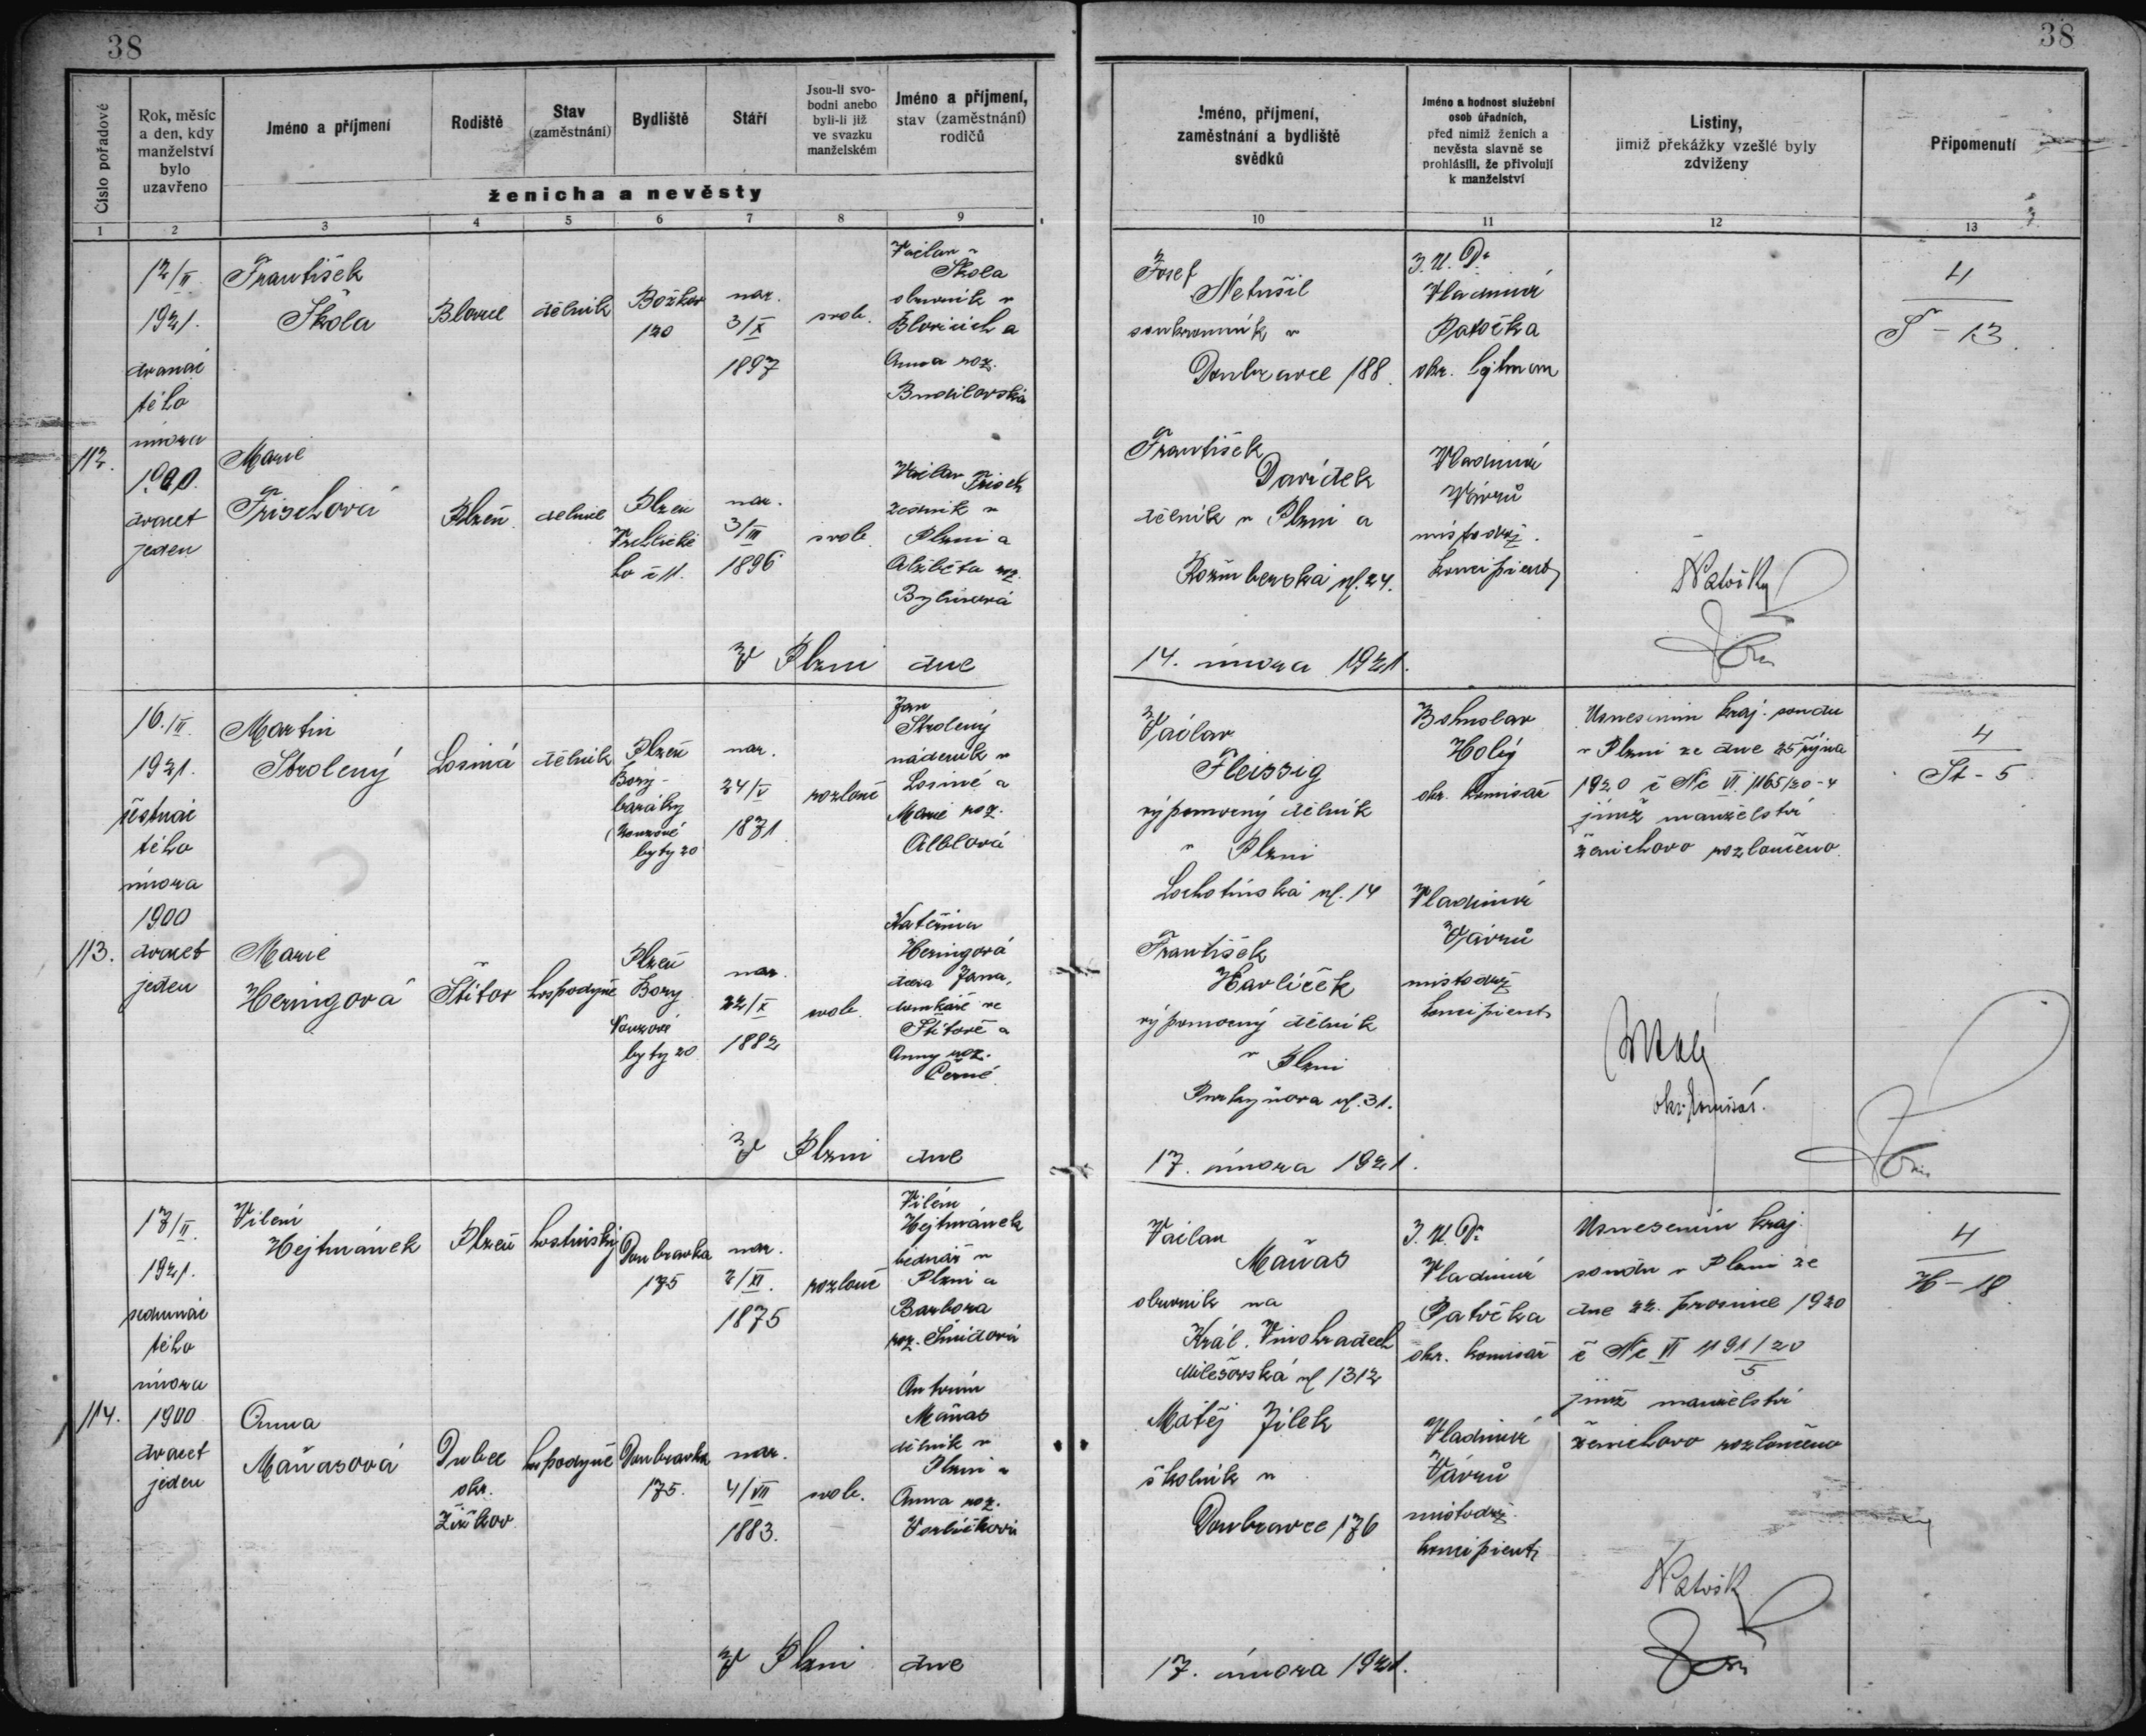 38
38
Číslo pořadové
Rok, měsíc
a den, kdy
manželství
bylo
uzavřeno
Jméno a příjmení
Rodiště
Stav
(zaměstnání)
Bydliště
Stáří
Jsou-li svo-
bodni anebo
byli-li již
ve svazku
manželském
Jméno a příjmení,
stav (zaměstnání)
rodičů
ženicha a nevěsty
1 2 3 4 5 6 7 8 9
Jméno, příjmení,
zaměstnání a bydliště
svědků
Jméno a hodnost služební
osob úřadních,
před nimiž ženich a
nevěsta slavně se
prohlásili, že přivolují
k manželství
Listiny,
jimiž překážky vzešlé byly
zdviženy
Připomenutí
10 11 12 13
112.
12/II.
1921.
dvanác
tého
února
1900
dvacet
jeden
František
Škola
Blovice
dělník
Božkov
120
nar.
3/X
1897
svob.
Václav
Škola
obuvník v
Blovicích a
Anna roz.
Marie
Frischová
Plzeň
dělnice
Plzeň
Vrchlické
ho č 11.
nar.
3/III
1896
svob.
Václav Frisch
zedník v
Plzni a
Alžběta roz.
V Plzni dne
Josef
Netušil
soukromník v
Doubravce 188.
František
Davídek
dělník v Plzni a
Rožmberská ul. 24.
14. února 1921.
J. U. Dr
Vladimír
Patočka
okr.
Vladimír
Vávrů
místodrž.
koncipient
4
Š - 13.
113.
16./II.
1921.
šestnác
tého
února
1900
dvacet
jeden
Martin
Strolený
Losiná
dělník
Plzeň
Bory-
baráky
(nouzové
byty 20
nar.
24/V
1871
rozlouč
Jan
Strolený
nádeník v
Losiné a
Marie roz.
Alblová
Marie
Heringová
Štítov
hospodyně
Plzeň
Bory
Nouzové
byty 20
nar.
22/X
1882
svob.
Kateřina
Heringová
dcera Jana,
domkáře ve
Štítově a
Anny roz.
Černé
V Plzni dne
Václav
Fleissig
výpomocný dělník
v Plzni
Lochotínská ul. 14
František
Havlíček
výpomocný dělník
v Plzni
Purkyňova ul. 31.
17. února 1921.
Bohuslav
Holý
okr. komisař
Vladimír
Vávrů
místodrž
koncipient
Usnesením kraj. soudu
v Plzni ze dne 25 října
1920 č Nc VI. 1165/20-4
jímž manželství
ženichovo rozloučeno.
okr. komisař.
4
St - 5
114.
17/II.
1921.
sedmnác
tého
února
1900
dvacet
jeden
Vilém
Hejtmánek
Plzeň
hostinský
Doubravka
175
nar.
2/XI.
1875
rozlouč
Vilém
Hejtmánek
bednář v
Plzni a
Barbora
roz. Šmídová
Anna
Maňasová
Dubec
okr.
Žižkov
hospodyně
Doubravka
175.
nar.
4/VII
1883.
svob.
Antonín
Maňas
dělník v
Plzni a
Anna roz.
V Plzni dne
Václav
Maňas
obuvník na
Král. Vinohradech
Milešovská ul 1312
Matěj Jílek
školník v
Doubravce 176
17. února 1921.
J. U. Dr
Vladimír
Patočka
okr. komisař
Vladimír
Vávrů
místodrž.
koncipient
Usnesením kraj.
soudu v Plzni ze
dne 22. prosince 1920
č Nc VI 1191/20
5
jímž manželství
ženichovo rozloučeno
4
H - 18